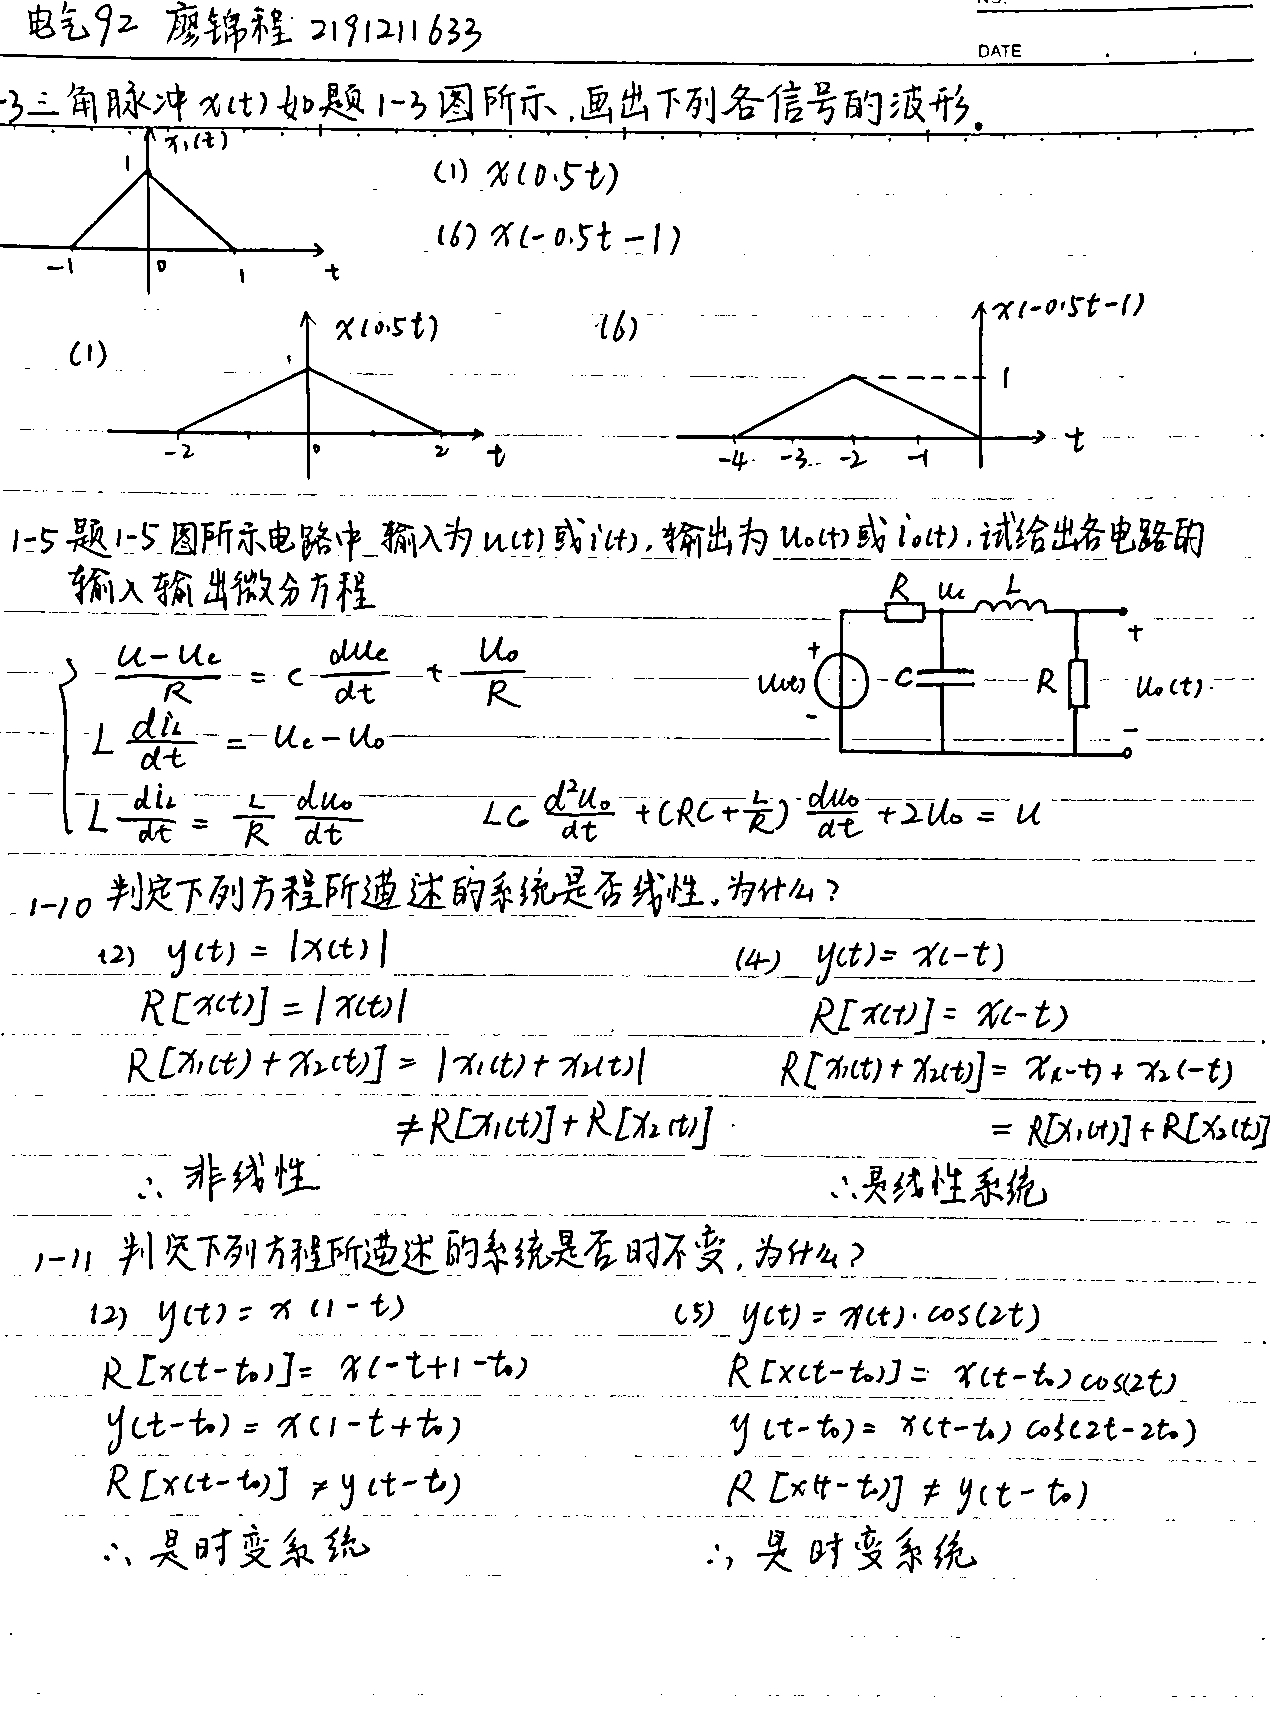 电气92 廖锦程 2191211633
DATE
-3 三角脉冲x(t)如题1-3图所示,画出下列各信号的波形.
x₁(t)
1
-1 0 1 t
(1) x(0.5t)
(6) x(-0.5t-1)
(1)
x(0.5t)
1
-2 0 2 t
(6)
x(-0.5t-1)
1
-4 -3 -2 -1 t
1-5 题1-5图所示电路中 输入为u(t)或i(t),输出为u₀(t)或i₀(t),试给出各电路的
输入输出微分方程
R uc L
u(t) + - C R + u₀(t) -
(u-uc)/R = C duc/dt + u₀/R
L diL/dt = uc-u₀
L diL/dt = L/R du₀/dt
LC d²u₀/dt +(RC+L/R) du₀/dt +2u₀ = u
1-10 判定下列方程所描述的系统是否线性,为什么?
(2) y(t) = |x(t)|
R[x(t)] = |x(t)|
R[x₁(t)+x₂(t)] = |x₁(t)+x₂(t)|
≠R[x₁(t)]+R[x₂(t)]
∴ 非线性
(4) y(t)= x(-t)
R[x(t)] = x(-t)
R[x₁(t)+x₂(t)]= x₁(-t)+x₂(-t)
= R[x₁(t)]+R[x₂(t)]
∴是线性系统
1-11 判定下列方程所描述的系统是否时不变,为什么?
(2) y(t)= x(1-t)
R[x(t-t₀)]= x(-t+1-t₀)
y(t-t₀) = x(1-t+t₀)
R[x(t-t₀)] ≠ y(t-t₀)
∴ 是时变系统
(5) y(t)= x(t)·cos(2t)
R[x(t-t₀)] = x(t-t₀)cos(2t)
y(t-t₀)= x(t-t₀) cos(2t-2t₀)
R[x(t-t₀)] ≠ y(t-t₀)
∴ 是时变系统